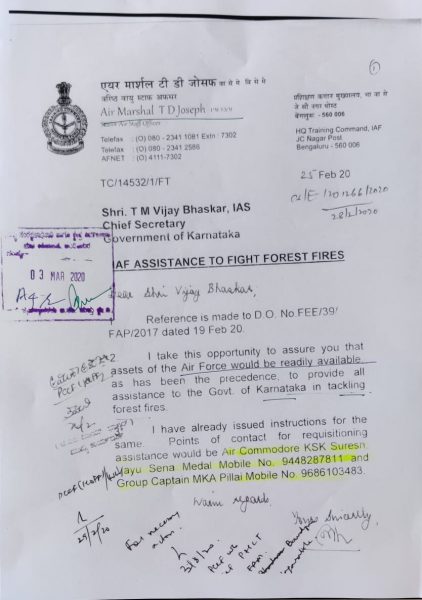 एयर मार्शल टी डी जोसफ वा से मे वि से मे
वरिष्ठ वायु स्टाफ अफसर
Air Marshal T D Joseph
Senior Air Staff Officer
Telefax : (O) 080 - 2341 1081 Extn : 7302
Telefax : (O) 080 - 2341 2586
AFNET : (O) 4111-7302
TC/14532/1/FT
①
प्रशिक्षण कमान मुख्यालय, भा वा से
जे सी नगर पोस्ट
बेंगलुरू - 560 006
HQ Training Command, IAF
JC Nagar Post
Bengaluru - 560 006
25 Feb 20
28/2/2020
Shri. T M Vijay Bhaskar, IAS
Chief Secretary
Government of Karnataka
03 MAR 2020
IAF ASSISTANCE TO FIGHT FOREST FIRES
Dear Shri Vijay Bhaskar,
Reference is made to D.O. No FEE/39/
FAP/2017 dated 19 Feb 20.
2 I take this opportunity to assure you that
assets of the Air Force would be readily available,
as has been the precedence, to provide all
assistance to the Govt. of Karnataka in tackling
forest fires.
I have already issued instructions for the
same. Points of contact for requisitioning
assistance would be Air Commodore KSK Suresh
Vayu Sena Medal Mobile No. 9448287811 and
Group Captain MKA Pillai Mobile No. 9686103483.
Warm regards,
Yours Sincerely
For necessary
action.
3/3/20.